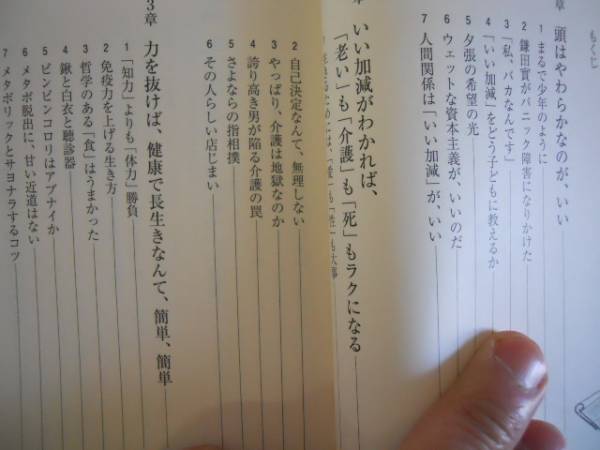 もくじ
章 頭はやわらかなのが、いい
1 まるで少年のように
2 鎌田實がパニック障害になりかけた
3 「私、バカなんです」
4 「いい加減」をどう子どもに教えるか
5 夕張の希望の光
6 ウェットな資本主義が、いいのだ
7 人間関係は「いい加減」が、いい
章 いい加減がわかれば、
「老い」も「介護」も「死」もラクになる
2 自己決定なんて、無理しない
3 やっぱり、介護は地獄なのか
4 誇り高き男が陥る介護の罠
5 さよならの指相撲
6 その人らしい店じまい
3章 力を抜けば、健康で長生きなんて、簡単、簡単
1 「知力」よりも「体力」勝負
2 免疫力を上げる生き方
3 哲学のある「食」はうまかった
4 鍬と白衣と聴診器
5 ピンピンコロリはアブナイか
6 メタボ脱出に、甘い近道はない
7 メタボリックとサヨナラするコツ